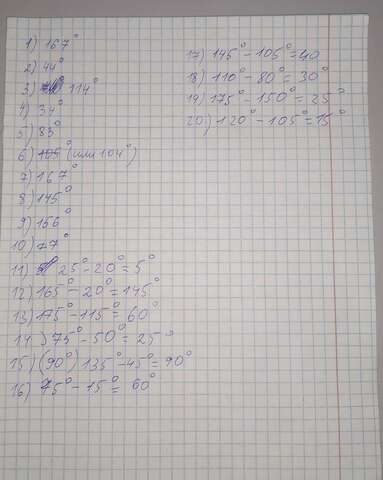 1) 167°
2) 44°
3) 114°
4) 34°
5) 83°
6) 105° (или 104°)
7) 167°
8) 145°
9) 156°
10) 77°
11) 25°-20°=5°
12) 165°-20°=145°
13) 175°-115°=60°
14) 75°-50°=25°
15) (90°) 135°-45°=90°
16) 75°-15°= 60°
17) 145°-105°=40
18) 110°-80°=30°
19) 175°-150°=25°
20) 120°-105°=15°